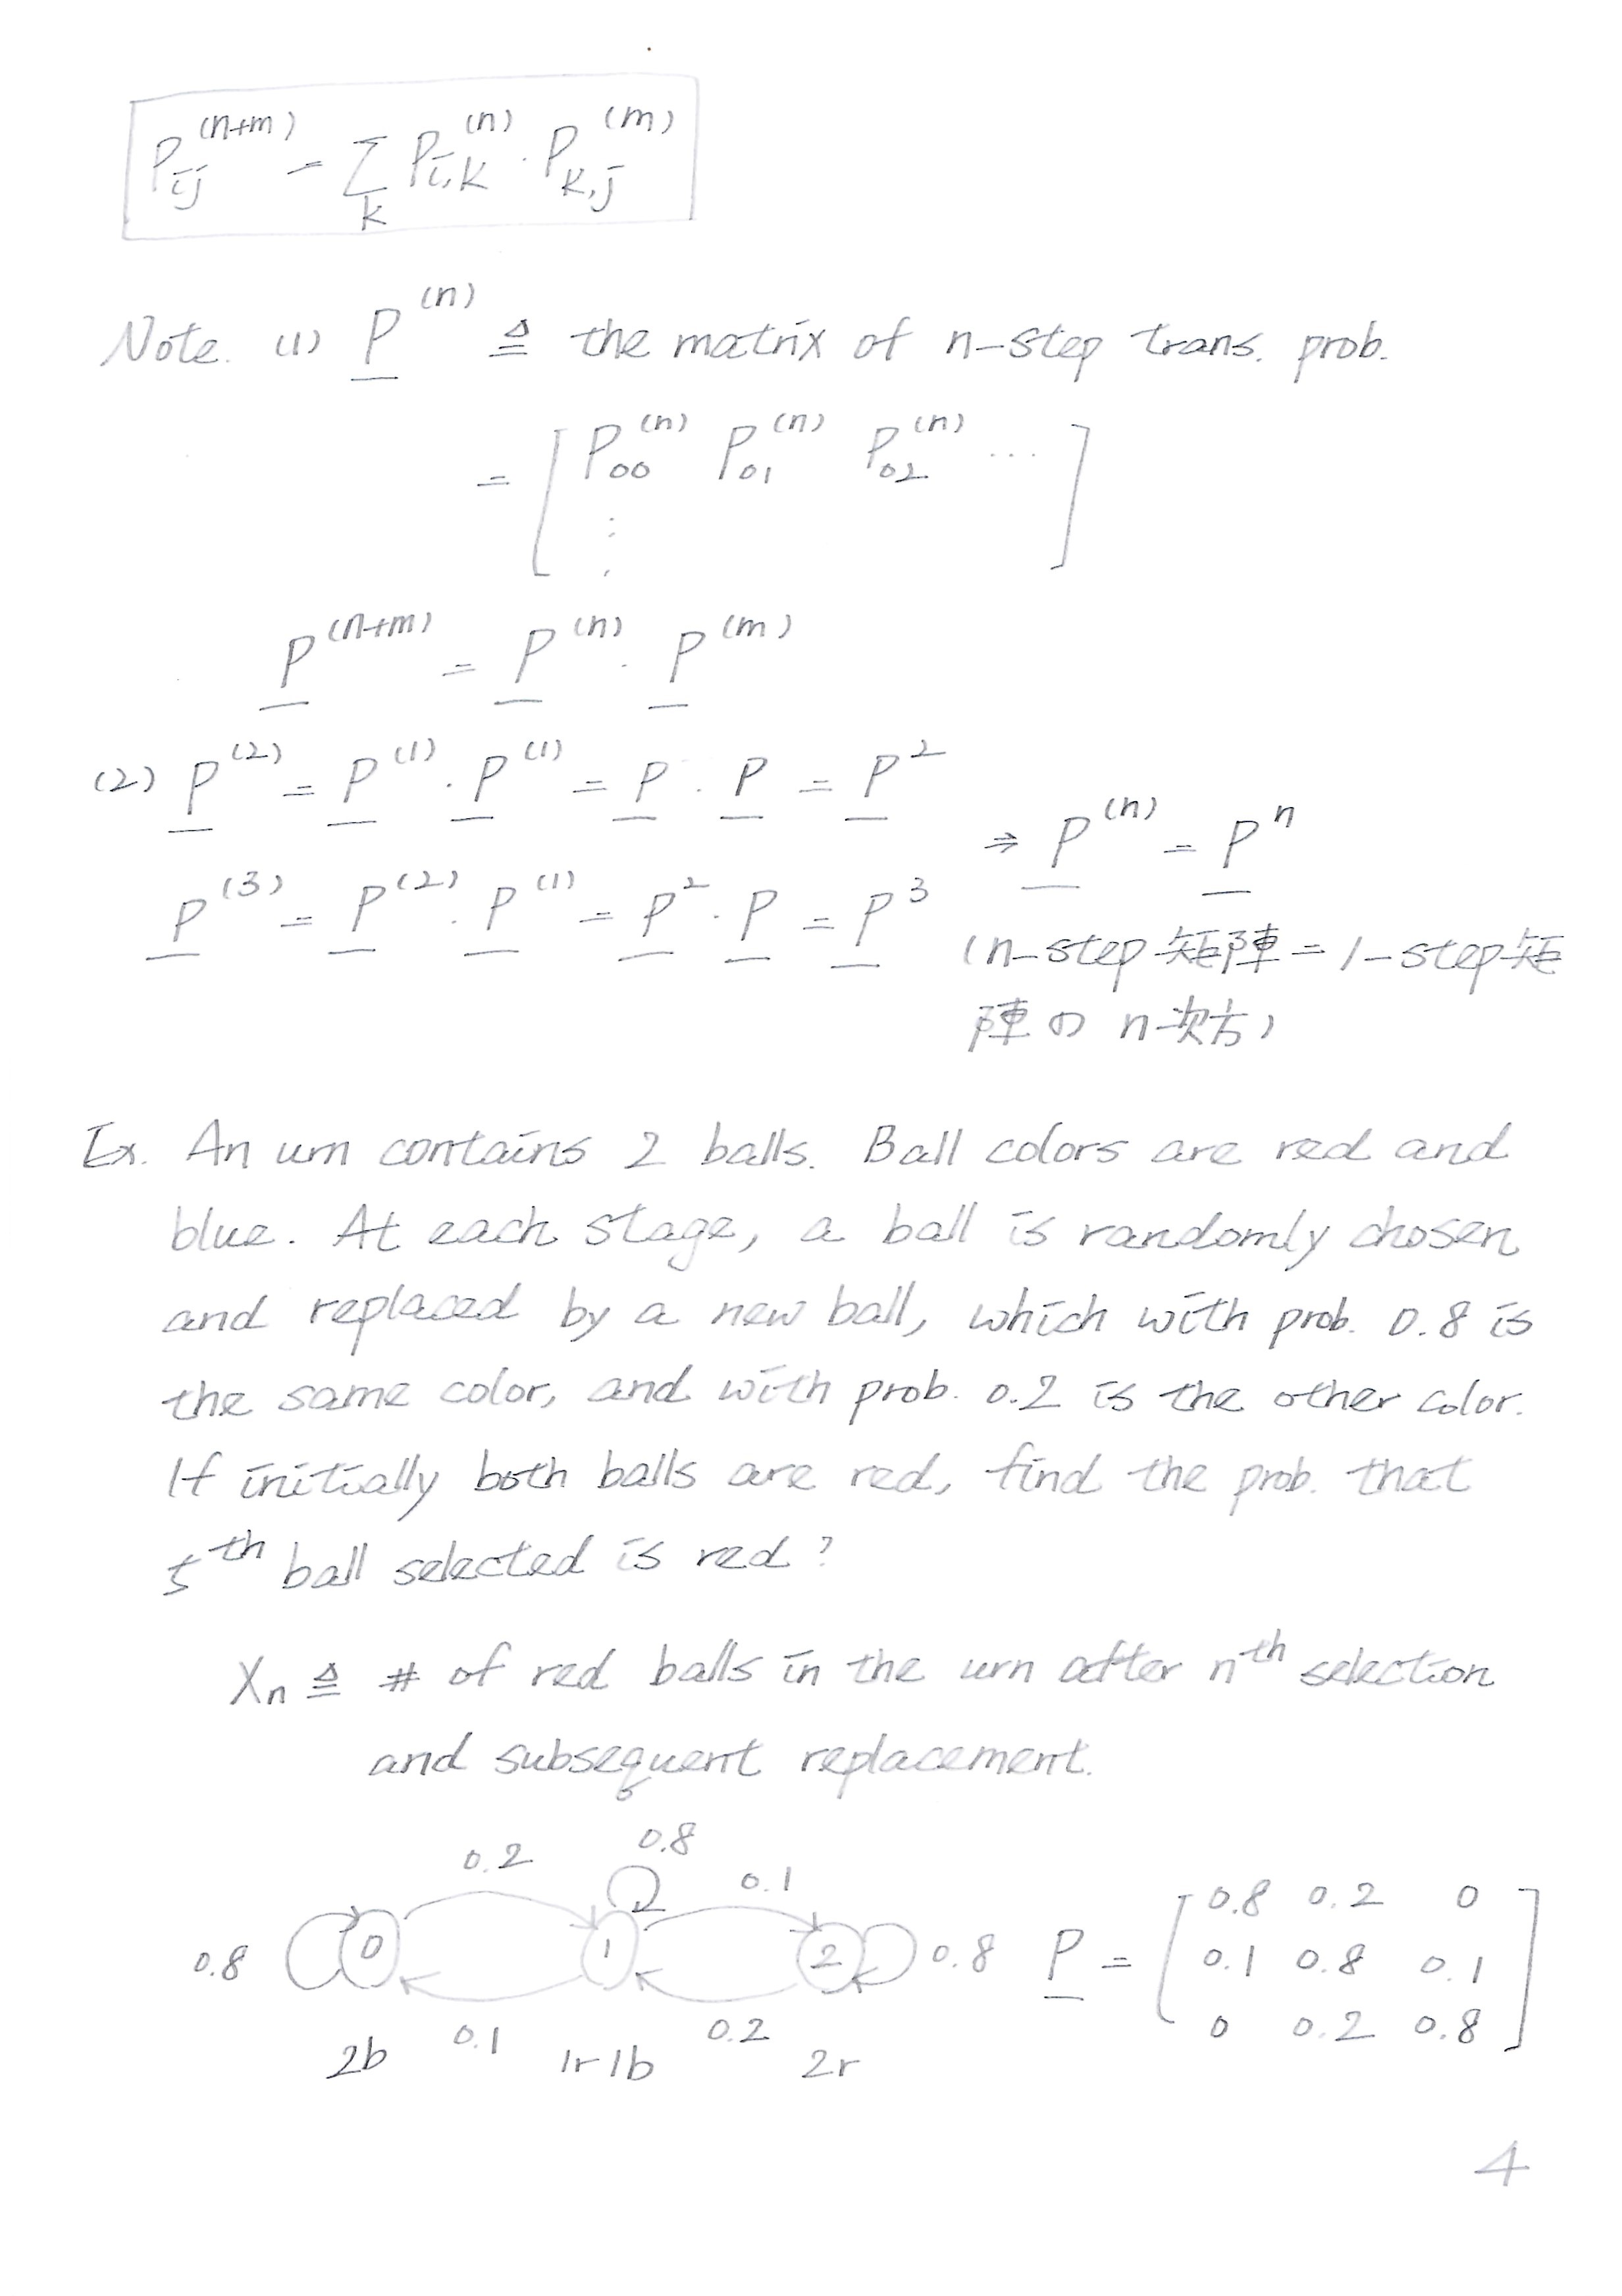 P_{ij}^{(n+m)} = \sum_k P_{i,k}^{(n)} \cdot P_{k,j}^{(m)}
Note. (1) P^{(n)} ≜ the matrix of n-step trans. prob.
= [ P_{00}^{(n)} P_{01}^{(n)} P_{02}^{(n)} ... ⋮ ]
P^{(n+m)} = P^{(n)} · P^{(m)}
(2) P^{(2)} = P^{(1)} · P^{(1)} = P · P = P^2
P^{(3)} = P^{(2)} · P^{(1)} = P^2 · P = P^3
⇒ P^{(n)} = P^n
(n-step 矩陣 = 1-step 矩
陣の n次方)
Ex. An urn contains 2 balls. Ball colors are red and
blue. At each stage, a ball is randomly chosen
and replaced by a new ball, which with prob. 0.8 is
the same color, and with prob. 0.2 is the other color.
If initially both balls are red, find the prob. that
5^{th} ball selected is red?
X_n ≜ # of red balls in the urn after n^{th} selection
and subsequent replacement.
0.2 0.8 0.1
0.8 0 1 2 0.8
0.1 0.2
2b 1r1b 2r
P = [ 0.8 0.2 0
0.1 0.8 0.1
0 0.2 0.8 ]
4